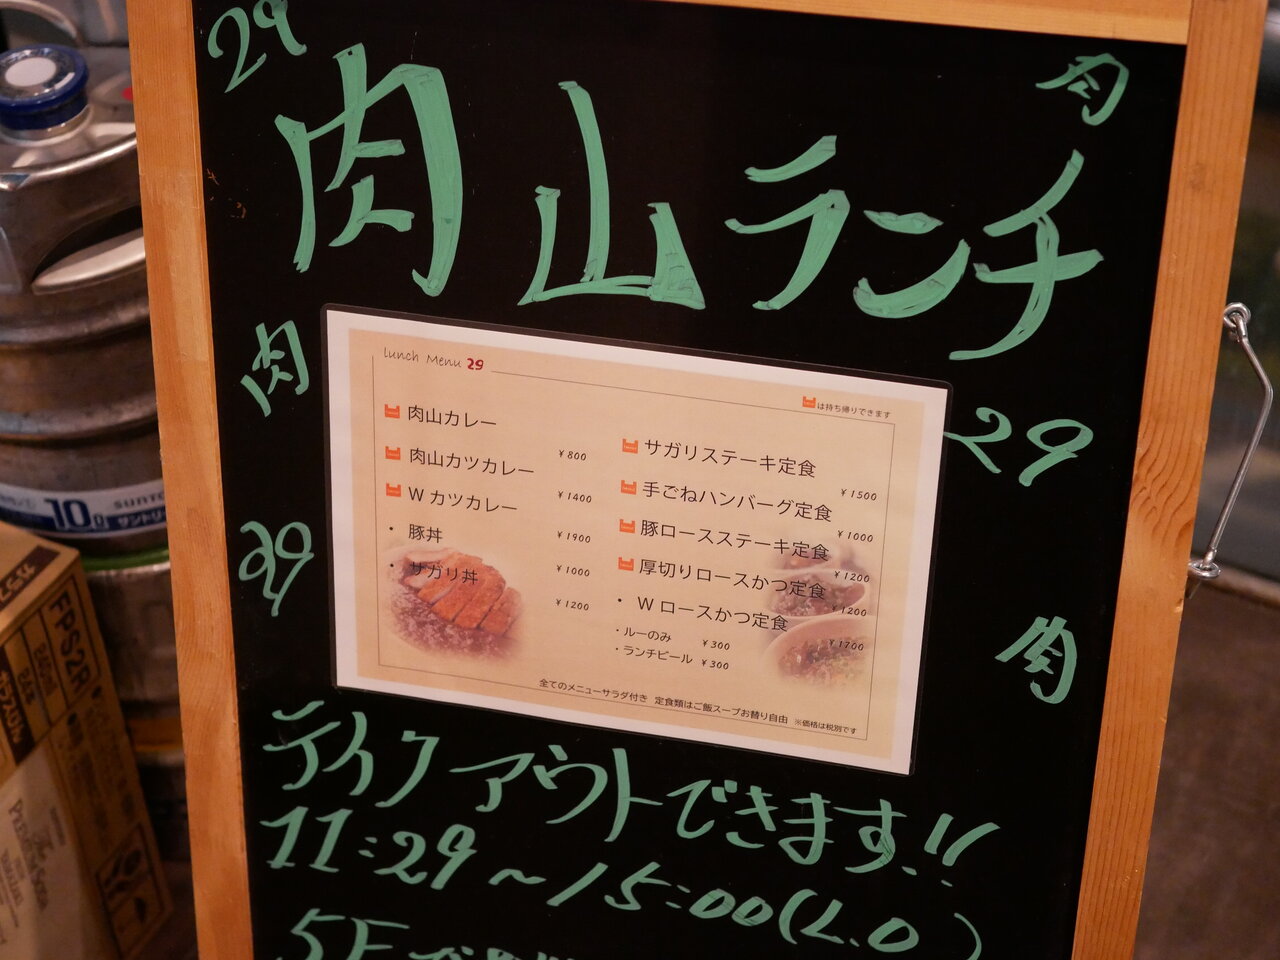 29
肉
肉山ランチ
肉
29
29
肉
Lunch Menu 29
は持ち帰りできます
肉山カレー ¥800
肉山カツカレー ¥1400
Wカツカレー ¥1900
・豚丼 ¥1000
・サガリ丼 ¥1200
サガリステーキ定食 ¥1500
手ごねハンバーグ定食 ¥1000
豚ロースステーキ定食 ¥1200
厚切りロースかつ定食 ¥1200
・Wロースかつ定食 ¥1700
・ルーのみ ¥300
・ランチビール ¥300
全てのメニューサラダ付き 定食類はご飯スープお替り自由 ※価格は税別です
テイクアウトできます!!
11:29~15:00(L.O)
5F
10ℓ
SUNTO
サントリー
FPS2R